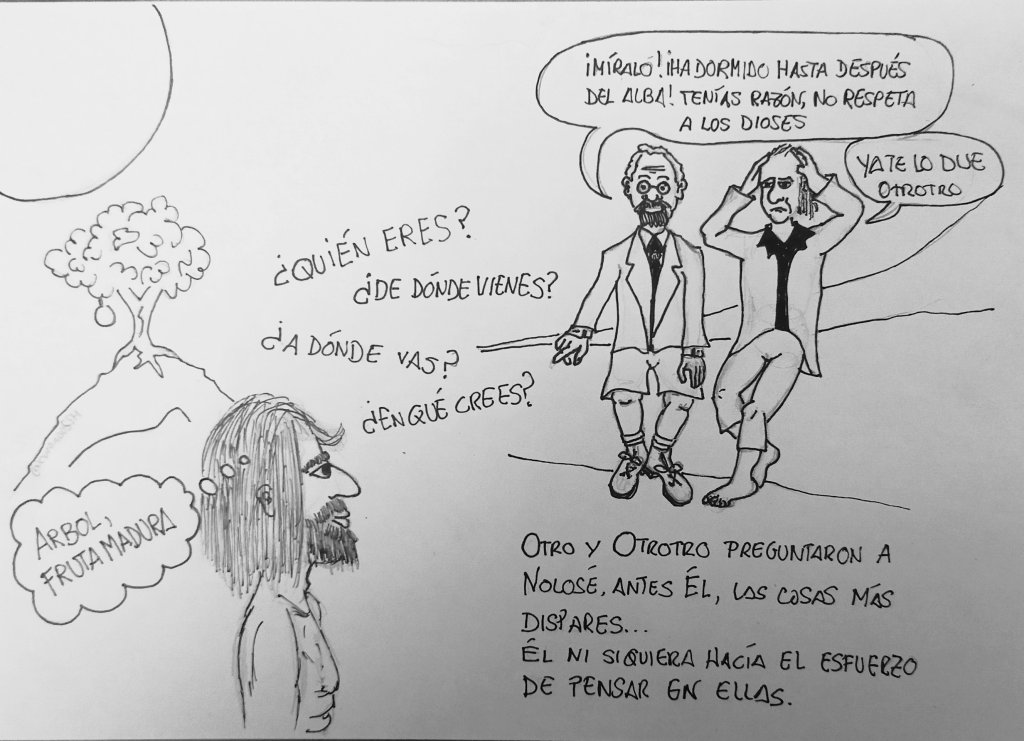 ¡MÍRALO! ¡HA DORMIDO HASTA DESPUÉS
DEL ALBA! TENÍAS RAZÓN, NO RESPETA
A LOS DIOSES
YA TE LO DIJE
OTROTRO
¿QUIÉN ERES?
¿DE DÓNDE VIENES?
¿A DÓNDE VAS?
¿EN QUÉ CREES?
ARBOL,
FRUTA MADURA
OTRO Y OTROTRO PREGUNTARON A
NOLOSÉ, ANTES ÉL, LAS COSAS MÁS
DISPARES...
ÉL NI SIQUIERA HACÍA EL ESFUERZO
DE PENSAR EN ELLAS.